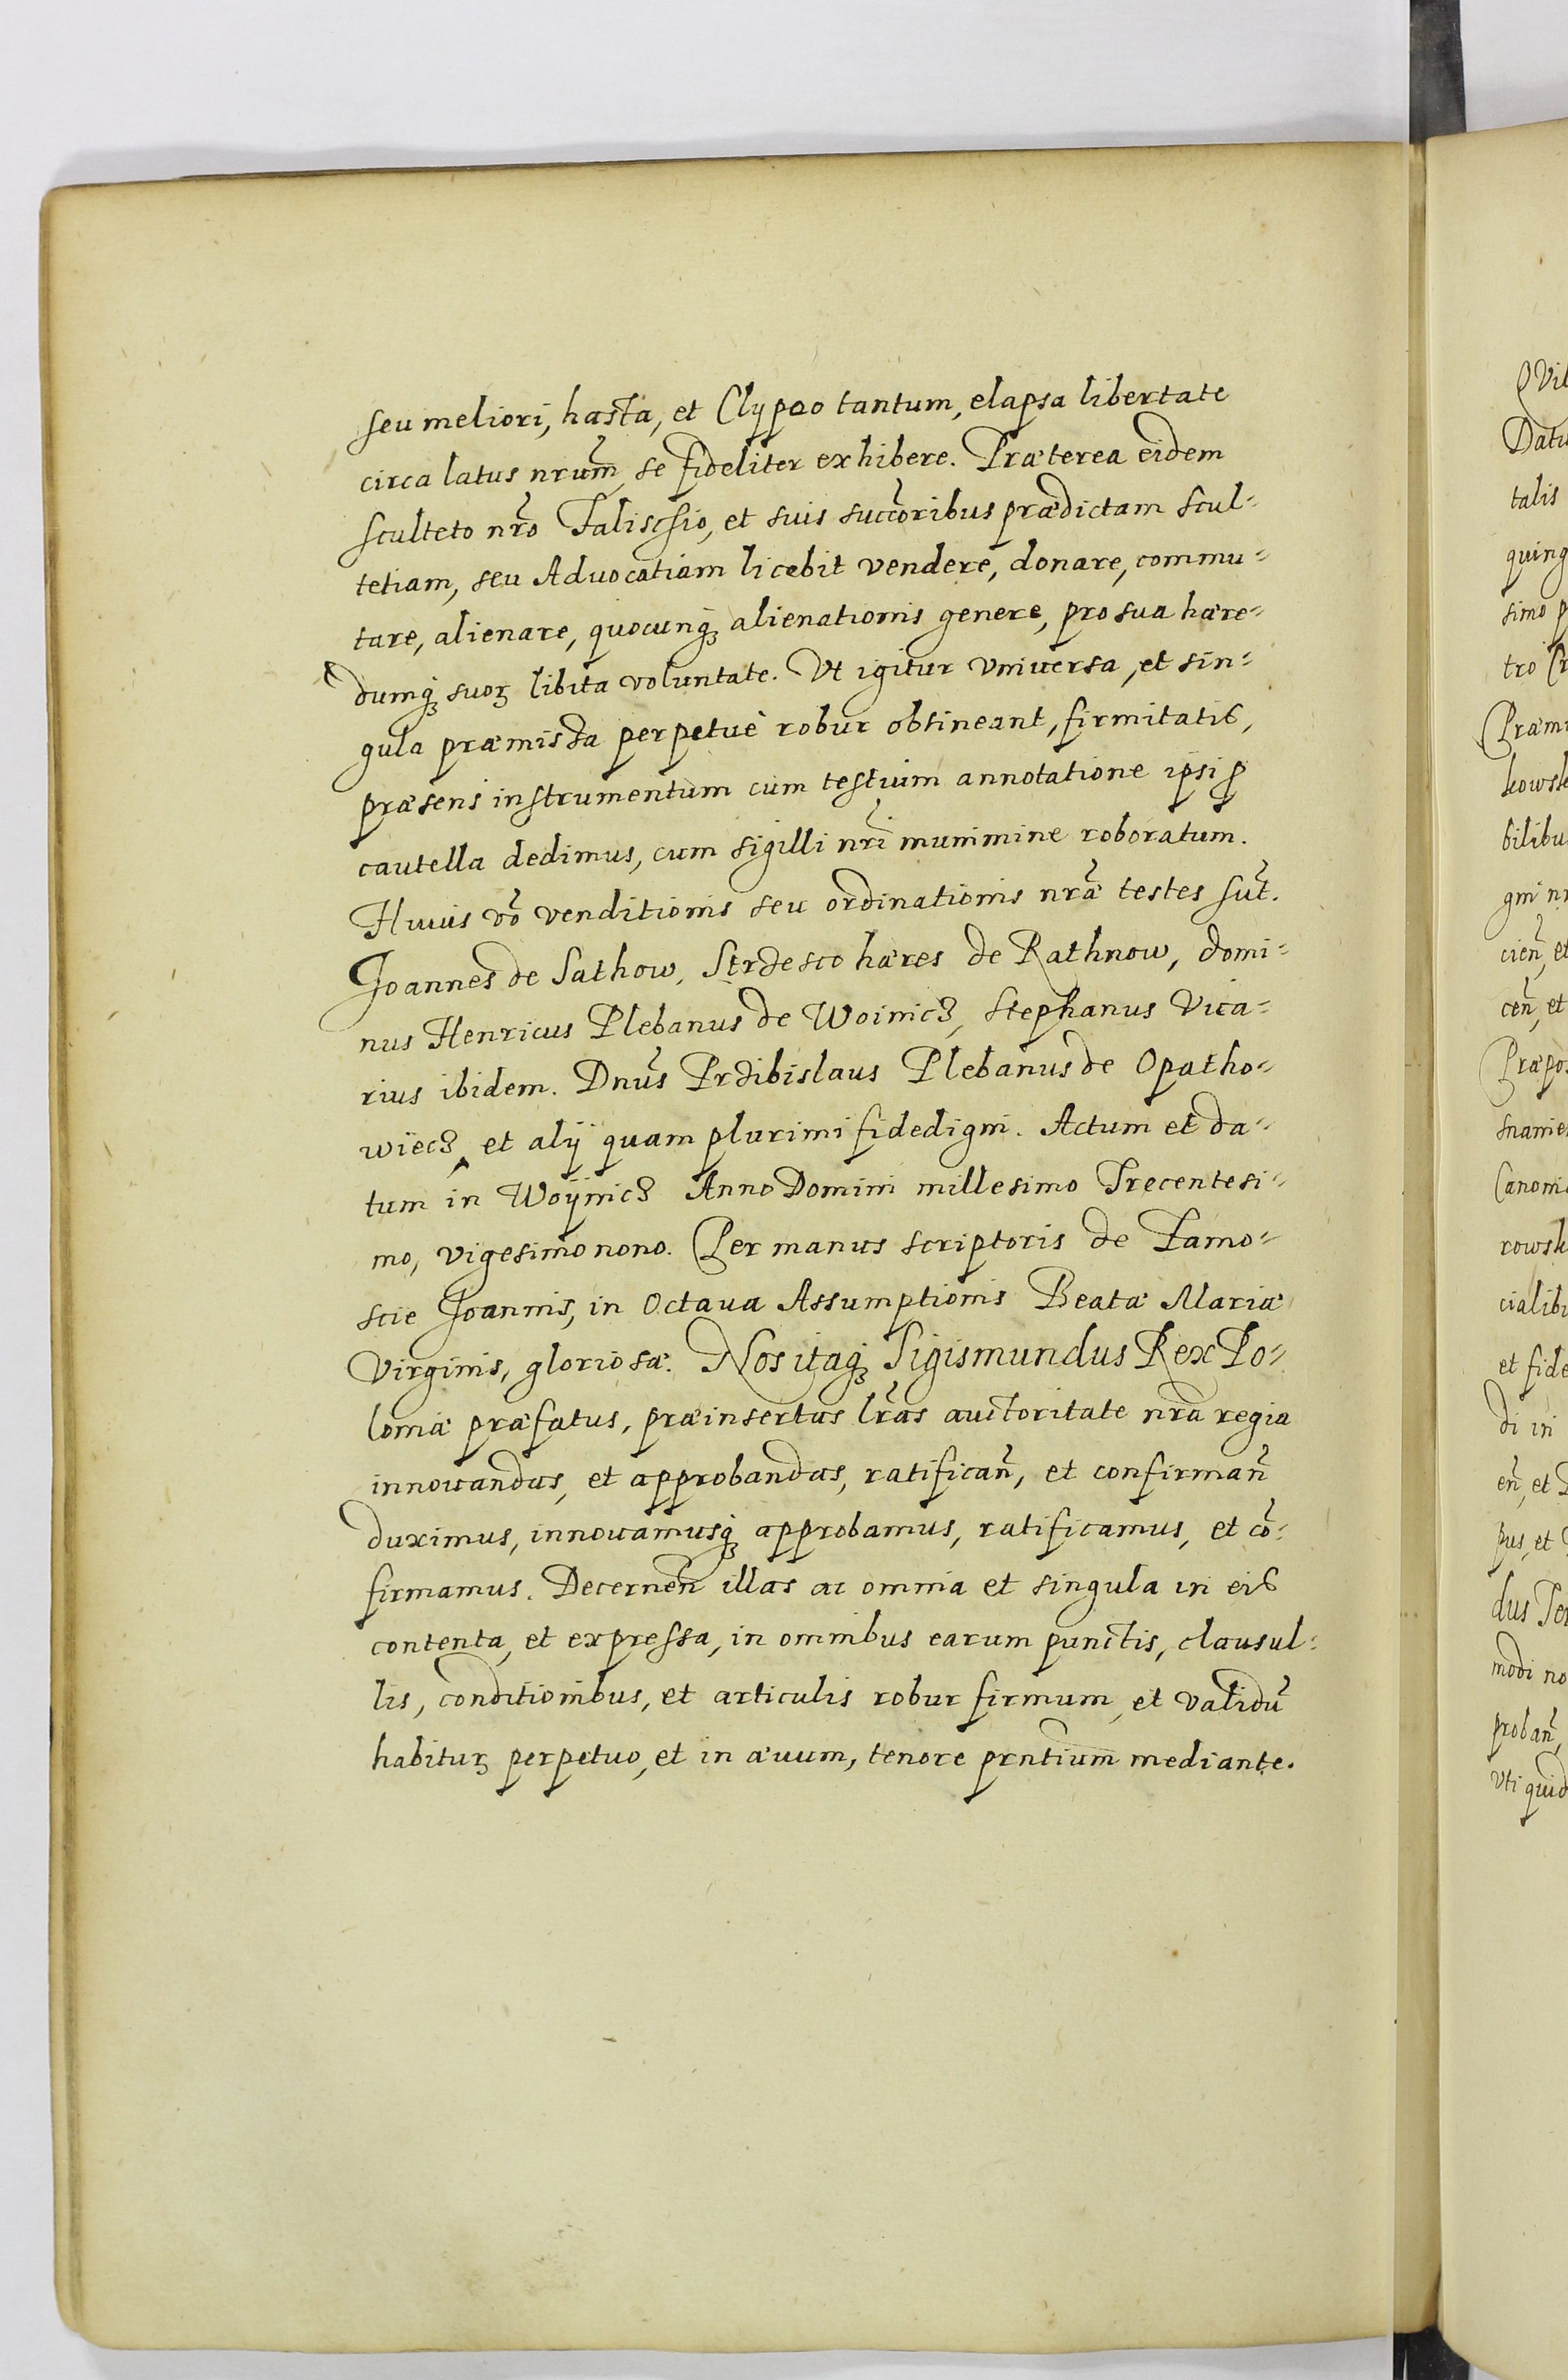 seu meliori, hasta, et Clypeo tantum, elapsa libertate
circa latus nrum̃, se fideliter exhibere. Præterea eidem
sculteto nr̃o Falisсsio, et suis succ̃oribus prædictam scul⸗
tetiam, seu Aduocatiam licebit vendere, donare, commu⸗
tare, alienare, quocunqꝫ alienationis genere, pro sua hære⸗
dumqꝫ suoꝝ libita voluntate. Vt igitur vniuersa, et sin⸗
gula præmissa perpetuè robur obtineant, firmitatis,
præsens instrumentum cum testium annotatione ipsi ꝓ
cautella dedimus, cum sigilli nr̃i munimine roboratum.
Huius vo᷉ venditionis seu ordinationis nr̃æ testes su᷉t.
Joannes de Sathow, Strdesco hæres de Rathnow, domi⸗
nus Henricus Plebanus de Woinicz, Stephanus Vica⸗
rius ibidem. Dnu᷉s Prdibislaus Plebanus de Opatho⸗
wiecz, et alÿ quam plurimi fidedigni. Actum et da⸗
tum in Woÿnicz Anno Domini millesimo Trecentesi⸗
mo, vigesimo nono. Per manus scriptoris de Tamo⸗
scie Joannis, in Octaua Assumptionis Beatæ Mariæ
Virginis, gloriosæ. Nos itaqꝫ Sigismundus Rex Po⸗
loniæ præfatus, præinsertas lr̃as auctoritate nr̃a regia
innouandas, et approbandas, ratifican᷉, et confirman᷉
duximus, innouamusqꝫ approbamus, ratificamus, et co᷉⸗
firmamus. Decernen᷉ illas ac omnia et singula in eis
contenta, et expressa, in omnibus earum punctis, clausul⸗
lis, conditionibus, et articulis robur firmum, et validu᷉
habituꝝ perpetuo, et in æuum, tenore prntium̃ mediante.
QVi
Datu
talis
quing
simo p
tro Cr
Præm
kowsk
bilibu
gni nr
cien᷉, et
cen᷉, et
Præpos
snamie
Canoni
rowsk
cialibu
et fide
di in
en᷉, et
pus, et
dus Ter
modi no
proban᷉,
Vti quid